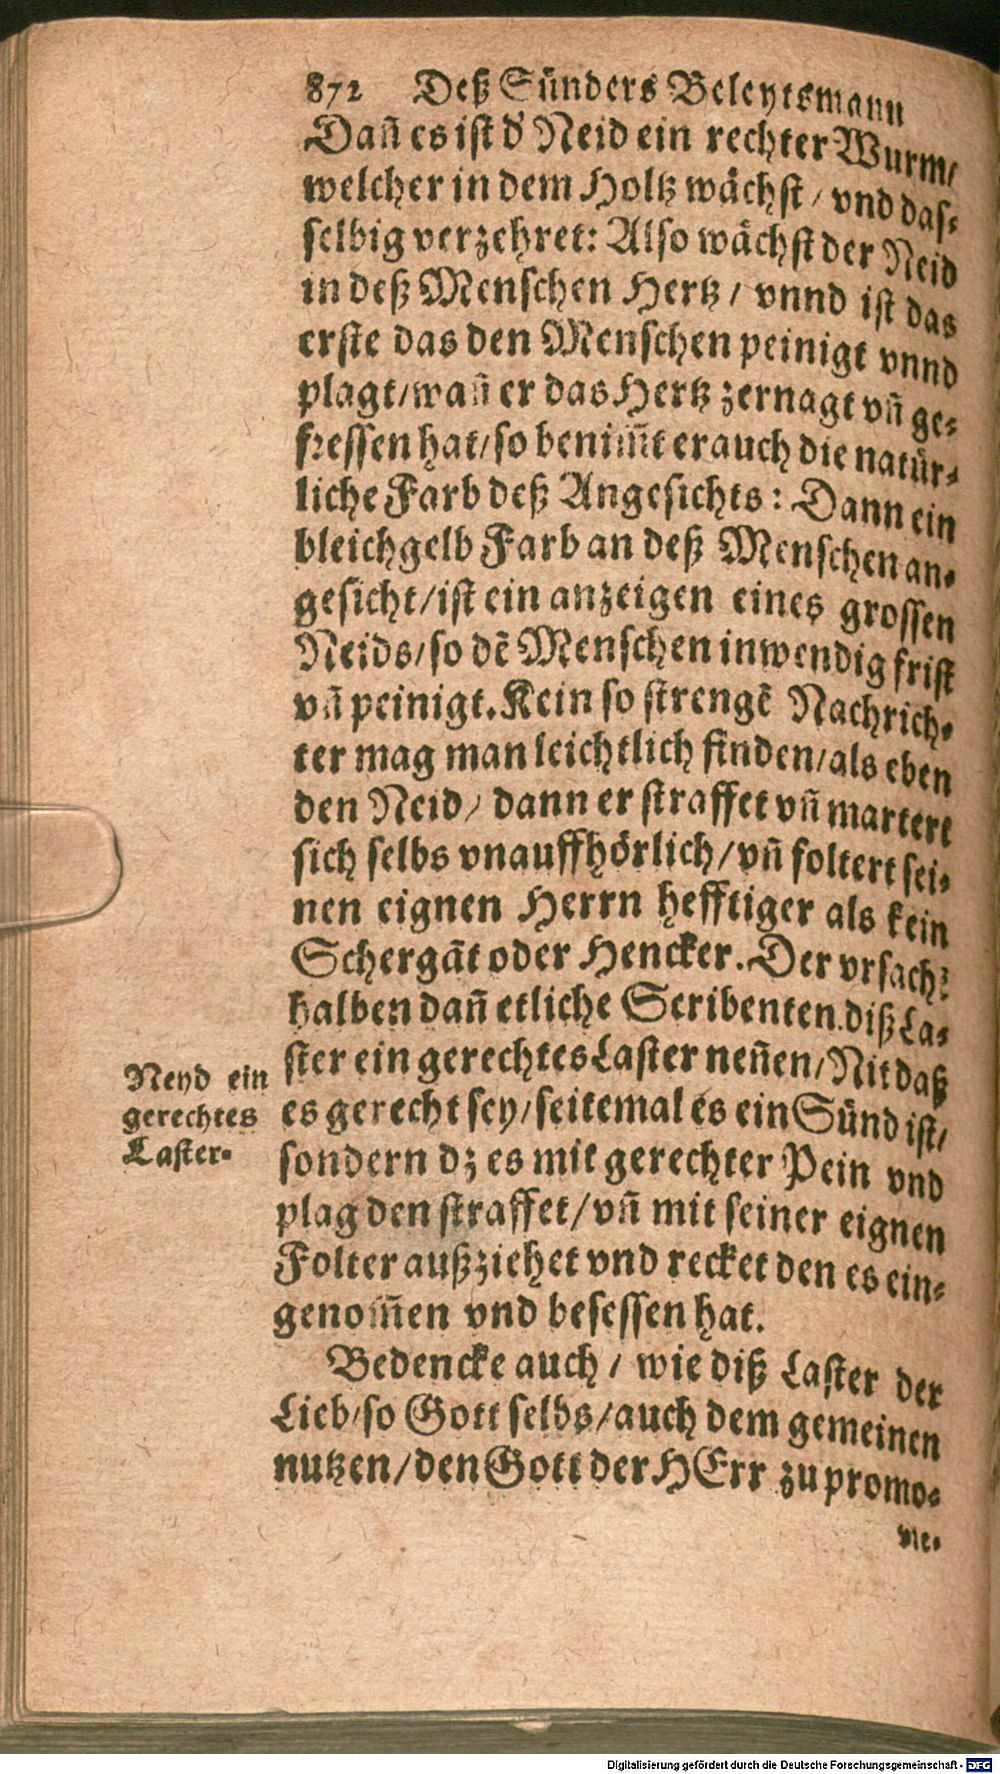 872 Deß Sünders Beleytsmann
Dañ es ist d' Neid ein rechter Wurm/
welcher in dem Holtz wächst / vnd das-
selbig verzehret: Also wächst der Neid
in deß Menschen Hertz / vnnd ist das
erste das den Menschen peinigt vnnd
plagt/wañ er das Hertz zernagt vñ ge-
fressen hat/so benim̃t er auch die natür-
liche Farb deß Angesichts: Dann ein
bleichgelb Farb an deß Menschen an-
gesicht/ist ein anzeigen eines grossen
Neids/so dẽ Menschen inwendig frist
vñ peinigt. Kein so strengẽ Nachrich-
ter mag man leichtlich finden/als eben
den Neid/ dann er straffet vñ martert
sich selbs vnauffhörlich/vñ foltert sei-
nen eignen Herrn hefftiger als kein
Schergãt oder Hencker. Der vrsach-
halben dañ etliche Scribenten diß La-
ster ein gerechtes Laster neñen/Nit daß
es gerecht sey/seitemal es ein Sünd ist/
sondern dz es mit gerechter Pein vnd
plag den straffet/vñ mit seiner eignen
Folter außziehet vnd recket den es ein-
genom̃en vnd besessen hat.
Neyd ein
gerechtes
Laster.
Bedencke auch / wie diß Laster der
Lieb/so Gott selbs/auch dem gemeinen
nutzen/den Gott der HErr zu promo-
vie-
Digitalisierung gefördert durch die Deutsche Forschungsgemeinschaft - DFG